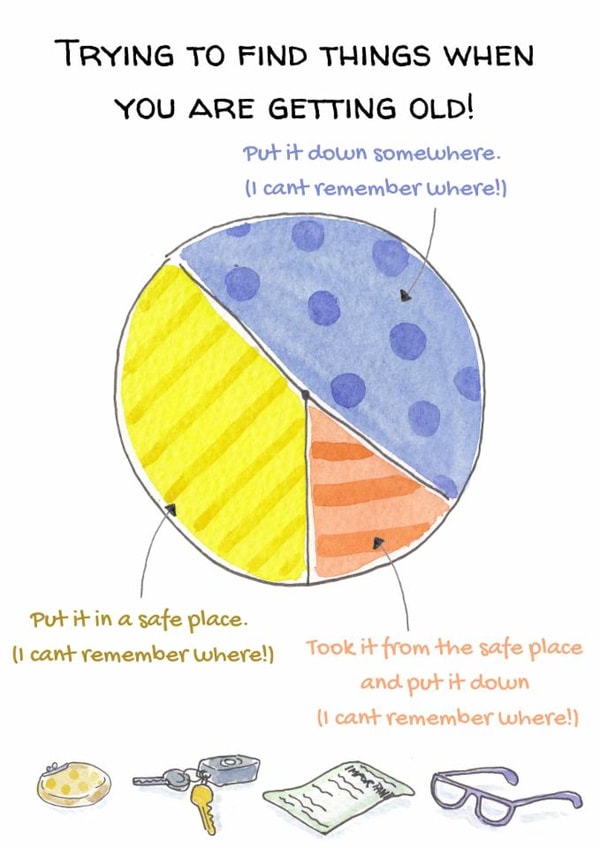 TRYING TO FIND THINGS WHEN
YOU ARE GETTING OLD!
Put it down somewhere.
(I cant remember where!)
Put it in a safe place.
(I cant remember where!)
Took it from the safe place
and put it down
(I cant remember where!)
IMPORTANT